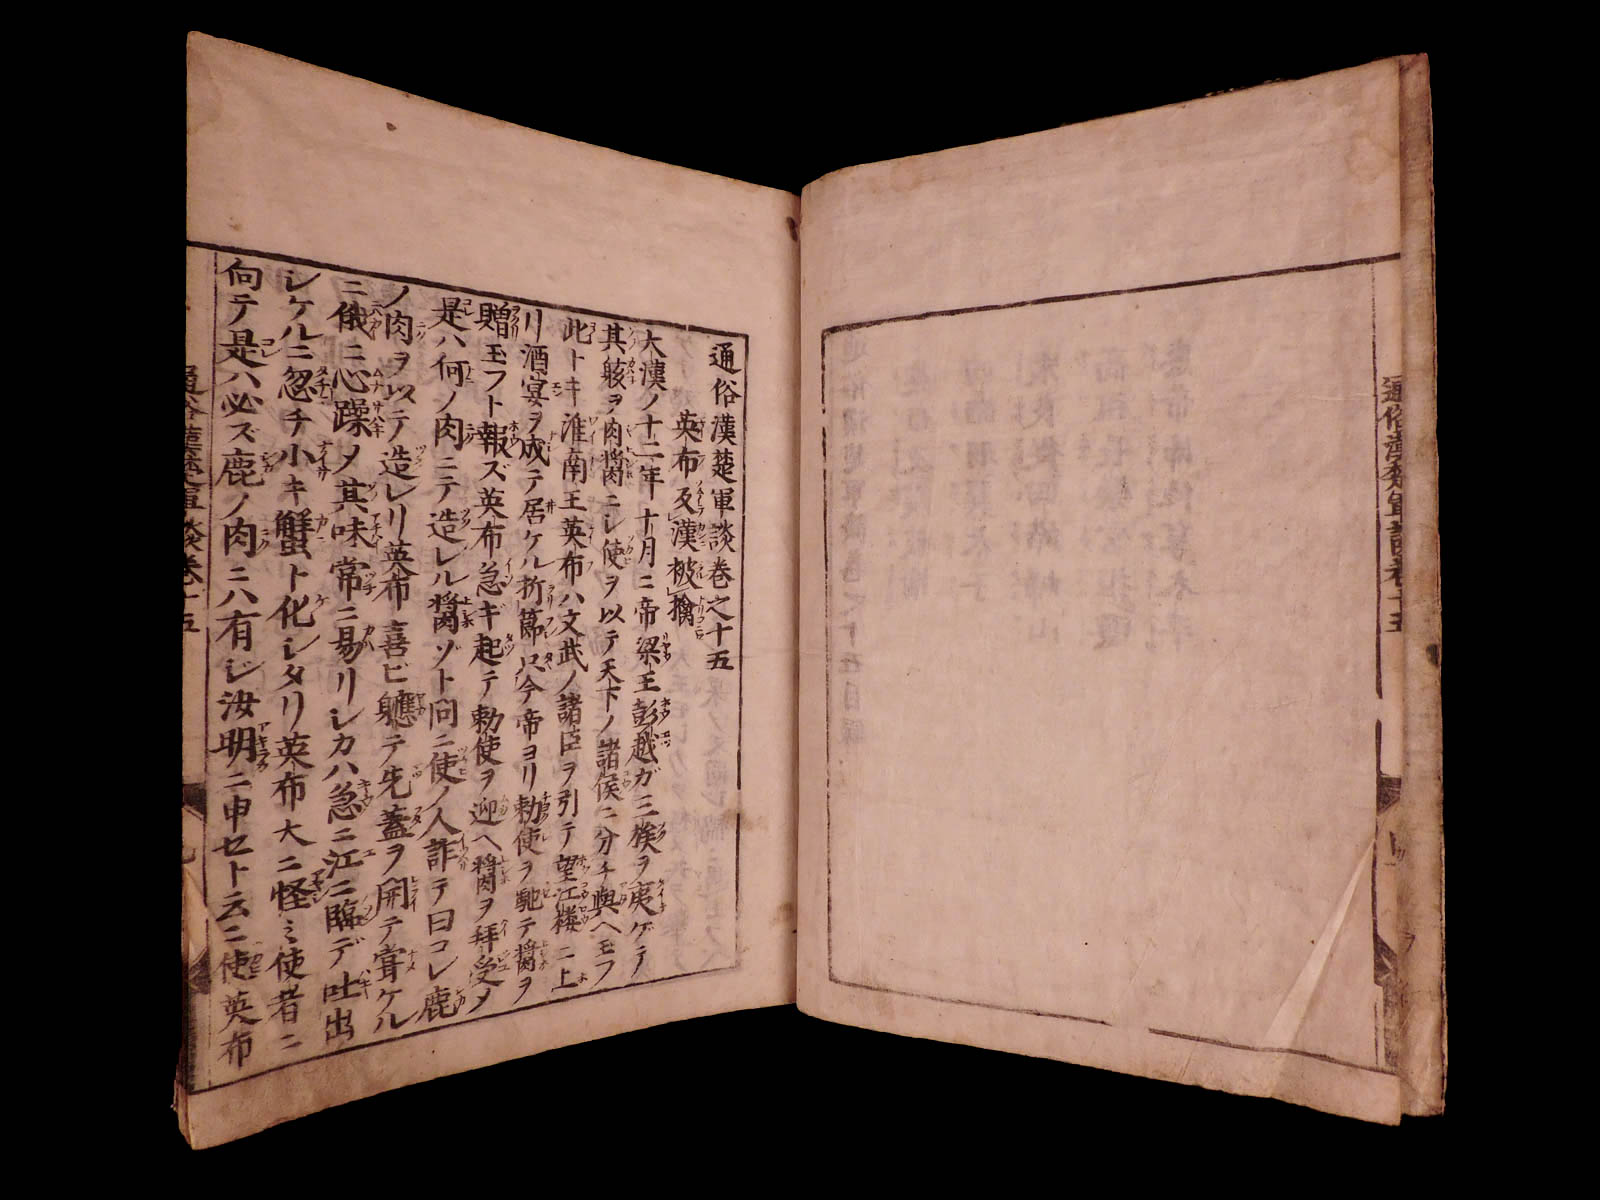 通俗漢楚軍談巻之十五
英布反漢被擒
大漢ノ十二年十月ニ帝梁王彭越ガ三族ヲ夷ゲテ
其骸ヲ肉醤ニシ使ヲ以テ天下ノ諸侯ニ分チ與ヘ玉フ
此トキ淮南王英布ハ文武ノ諸臣ヲ引テ望江楼ニ上
リ酒宴ヲ成テ居ケル折節只今帝ヨリ勅使ヲ馳テ醤ヲ
贈玉フト報ズ英布急ギ起テ勅使ヲ迎ヘ醤ヲ拜受メ
是ハ何ノ肉ニテ造レル醤ゾト問ニ使ノ人詐テ曰コレ鹿
ノ肉ヲ以テ造レリ英布喜ビ軈テ先蓋ヲ開テ甞ケル
ニ俄ニ心躁メ其味常ニ易リシカハ急ニ江ニ臨デ吐出
シケルニ忽チ小キ蟹ト化シタリ英布大ニ怪ミ使者ニ
向テ是ハ必ズ鹿ノ肉ニハ有ジ汝明ニ申セト云ニ使英布
通俗漢楚軍談巻十五
通俗漢楚軍談巻十五